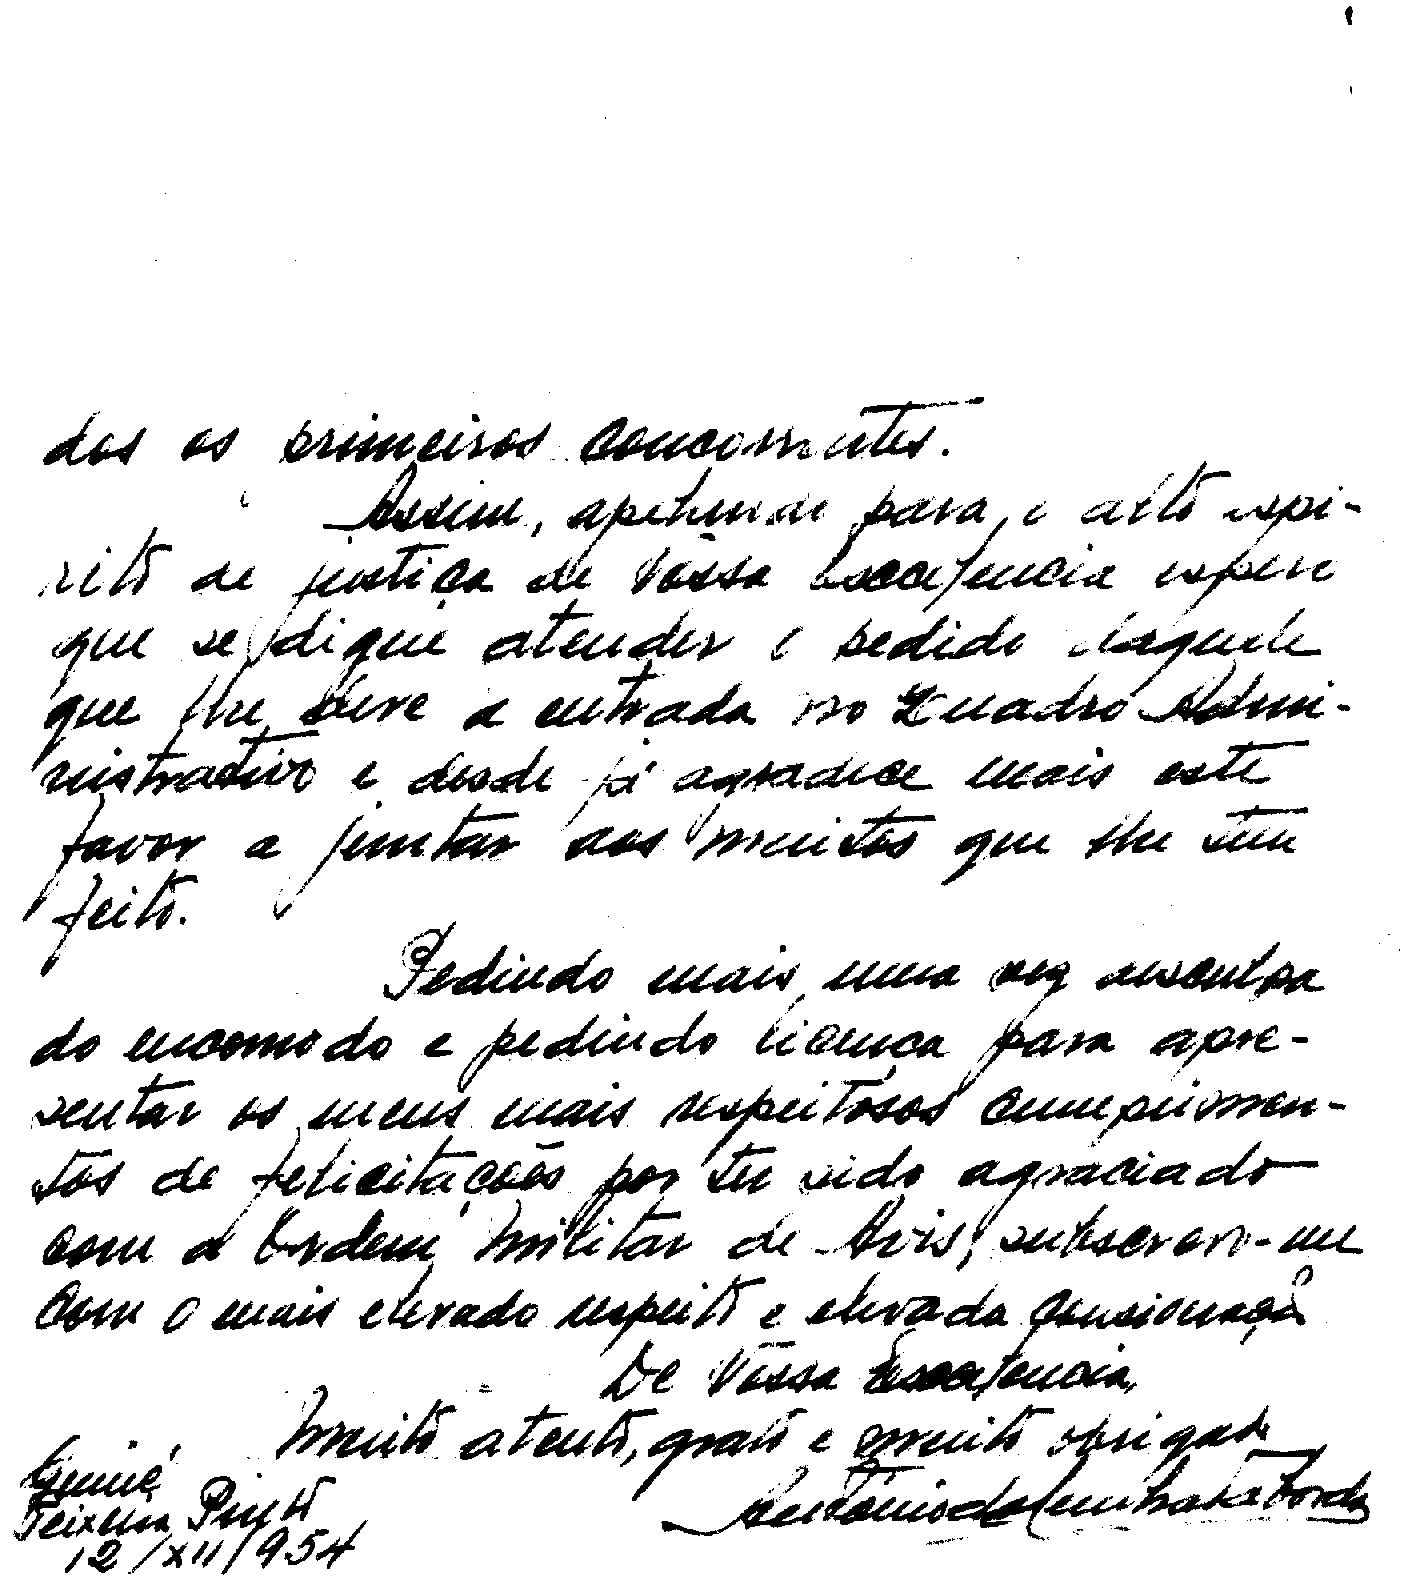 dos os primeiros concorrentes.
Assim, apelando para o alto espi-
rito de justiça de Vossa Excelencia espero
que se digne atender o pedido daquele
que lhe deve a entrada no Quadro Admi-
nistrativo e desde já agradece mais este
favor a juntar aos muitos que lhe tem
feito.
Pedindo mais uma vez desculpa
do encomodo e pedindo licença para apre-
sentar os meus mais respeitosos cumprimen-
tos de felicitações por ter sido agraciado
com a Ordem Militar de Avis, subscrevo-me
com o mais elevado respeito e elevada consideração
De Vossa Excelencia,
Muito atento, grato e muito obrigado
António da
Guiné
Teixeira Pinto
12/XII/954